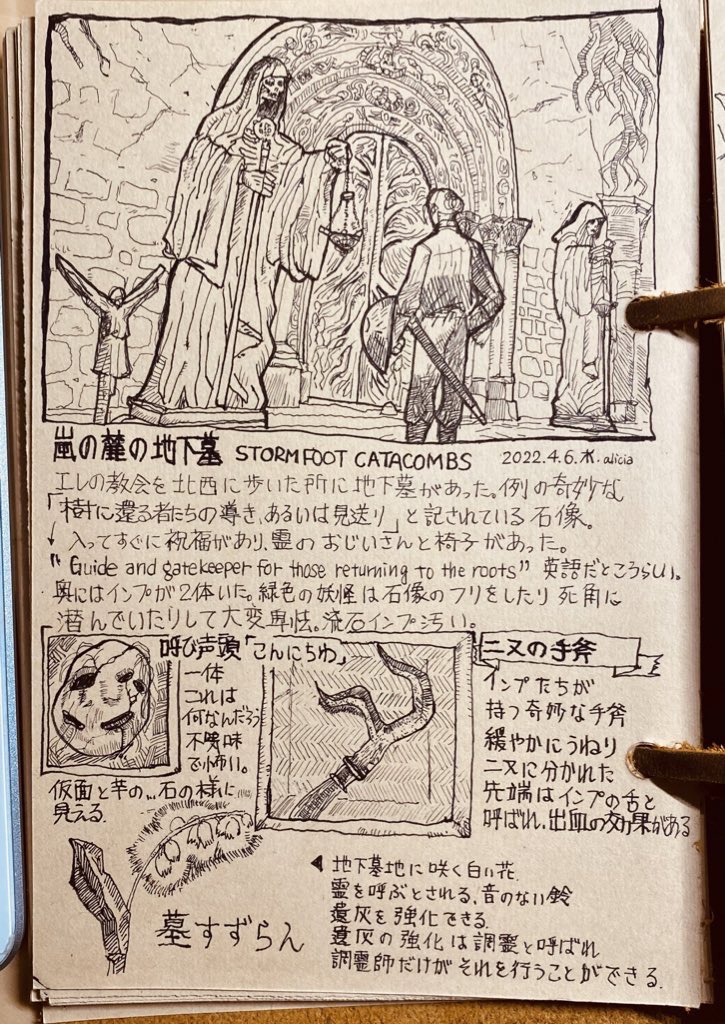 嵐の麓の地下墓 STORMFOOT CATACOMBS 2022.4.6.水.alicia
エレの教会を北西に歩いた所に地下墓があった。例の奇妙な
「樹に還る者たちの導き、あるいは見送り」と記されている石像。
入ってすぐに祝福があり、霊のおじいさんと椅子があった。
"Guide and gatekeeper for those returning to the roots" 英語だとこうらしい。
奥にはインプが2体いた。緑色の妖怪は石像のフリをしたり死角に
潜んでいたりして大変卑怯。流石インプ汚い。
呼び声頭「こんにちわ」
一体
これは
何なんだろう
不気味
で怖い。
仮面と芋の…石の様に
見える
二又の手斧
インプたちが
持つ奇妙な手斧
緩やかにうねり
二又に分かれた
先端はインプの舌と
呼ばれ、出血の効果がある
墓すずらん
◀ 地下墓地に咲く白い花
霊を呼ぶとされる、音のない鈴
遺灰を強化できる
遺灰の強化は調霊と呼ばれ
調霊師だけがそれを行うことができる.